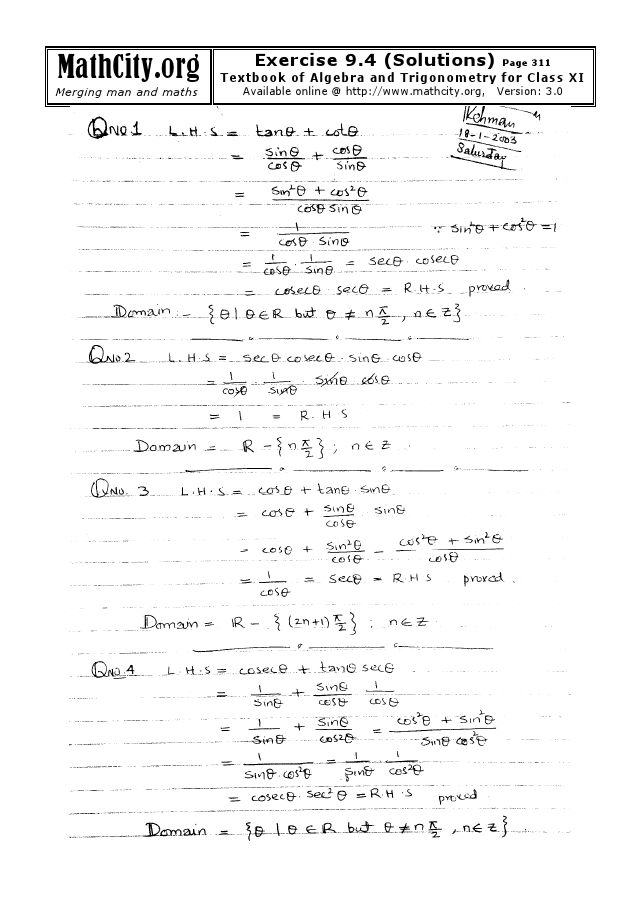 MathCity.org
Merging man and maths
Exercise 9.4 (Solutions) Page 311
Textbook of Algebra and Trigonometry for Class XI
Available online @ http://www.mathcity.org, Version: 3.0
18-1-2003
Saturday
QNO.1 L.H.S = tanθ + cotθ
= sinθ/cosθ + cosθ/sinθ
= (sin²θ + cos²θ)/(cosθ sinθ)
= 1/(cosθ · sinθ) ∵ sin²θ + cos²θ = 1
= 1/cosθ · 1/sinθ = secθ · cosecθ
= cosecθ · secθ = R.H.S proved.
Domain:- {θ | θ∈R but θ ≠ nπ/2, n∈Z}
QNO2 L.H.S = secθ cosecθ · sinθ cosθ
= 1/cosθ · 1/sinθ · sinθ cosθ
= 1 = R.H.S
Domain = R - {nπ/2} ; n∈Z.
QNO. 3 L.H.S = cosθ + tanθ · sinθ
= cosθ + sinθ/cosθ · sinθ
= cosθ + sin²θ/cosθ = (cos²θ + sin²θ)/cosθ
= 1/cosθ = secθ = R.H.S proved.
Domain = R - {(2n+1)π/2} ; n∈Z.
QNO.4 L.H.S = cosecθ + tanθ secθ
= 1/sinθ + sinθ/cosθ · 1/cosθ
= 1/sinθ + sinθ/cos²θ = (cos²θ + sin²θ)/(sinθ cos²θ)
= 1/(sinθ · cos²θ) = 1/sinθ · 1/cos²θ
= cosecθ · sec²θ = R.H.S proved
Domain = {θ | θ∈R but θ ≠ nπ/2, n∈Z}.